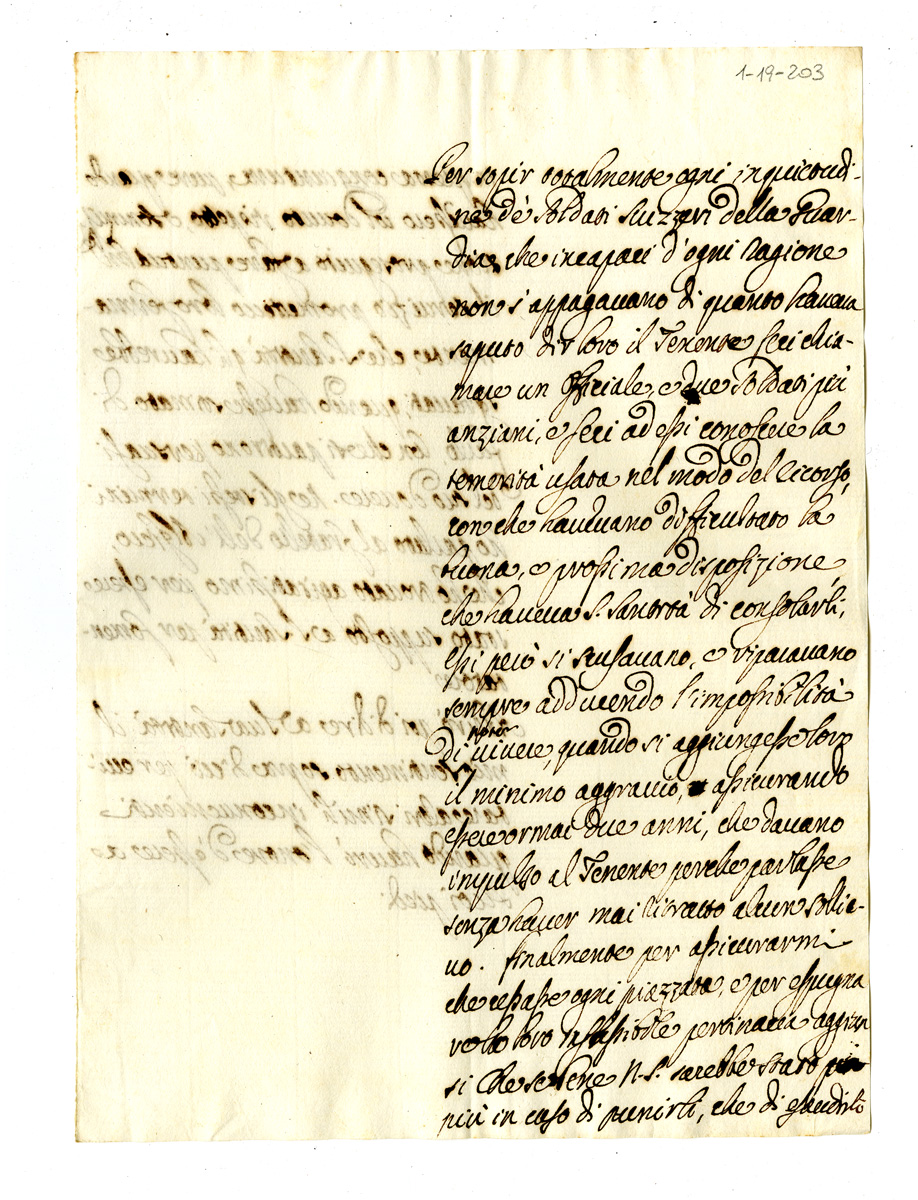 1-19-203
Per sopir totalmente ogni inquietudi-
ne de Soldati Suizzeri della Guar-
dia, che incapaci d'ogni Ragione
non s'appagauano di quanto haueua
saputo dir loro il Tenente feci chia-
mare un Officiale, e due Soldati più
anziani, e feci ad essi conoscere la
temerità usata nel modo del Ricorso,
con che haueuano difficultato la
buona, e prossima disposizione
che haueua S. Santità di consolarli;
Essi però si scusauano, e
sempre adducendo l'impossibilità
di poter viuere, quando si aggiungesse loro
il minimo aggrauio, assicurando
essere ormai due anni, che dauano
impulso al Tenente perche parlasse
senza hauer mai ritratto alcun sollie-
uo. finalmente per assicurarmi
che cessasse ogni piazzata, e per espugna
re la loro pertinacia aggiun
si che se bene N. S. sarebbe stato
più in caso di punirli, che di esaudirli